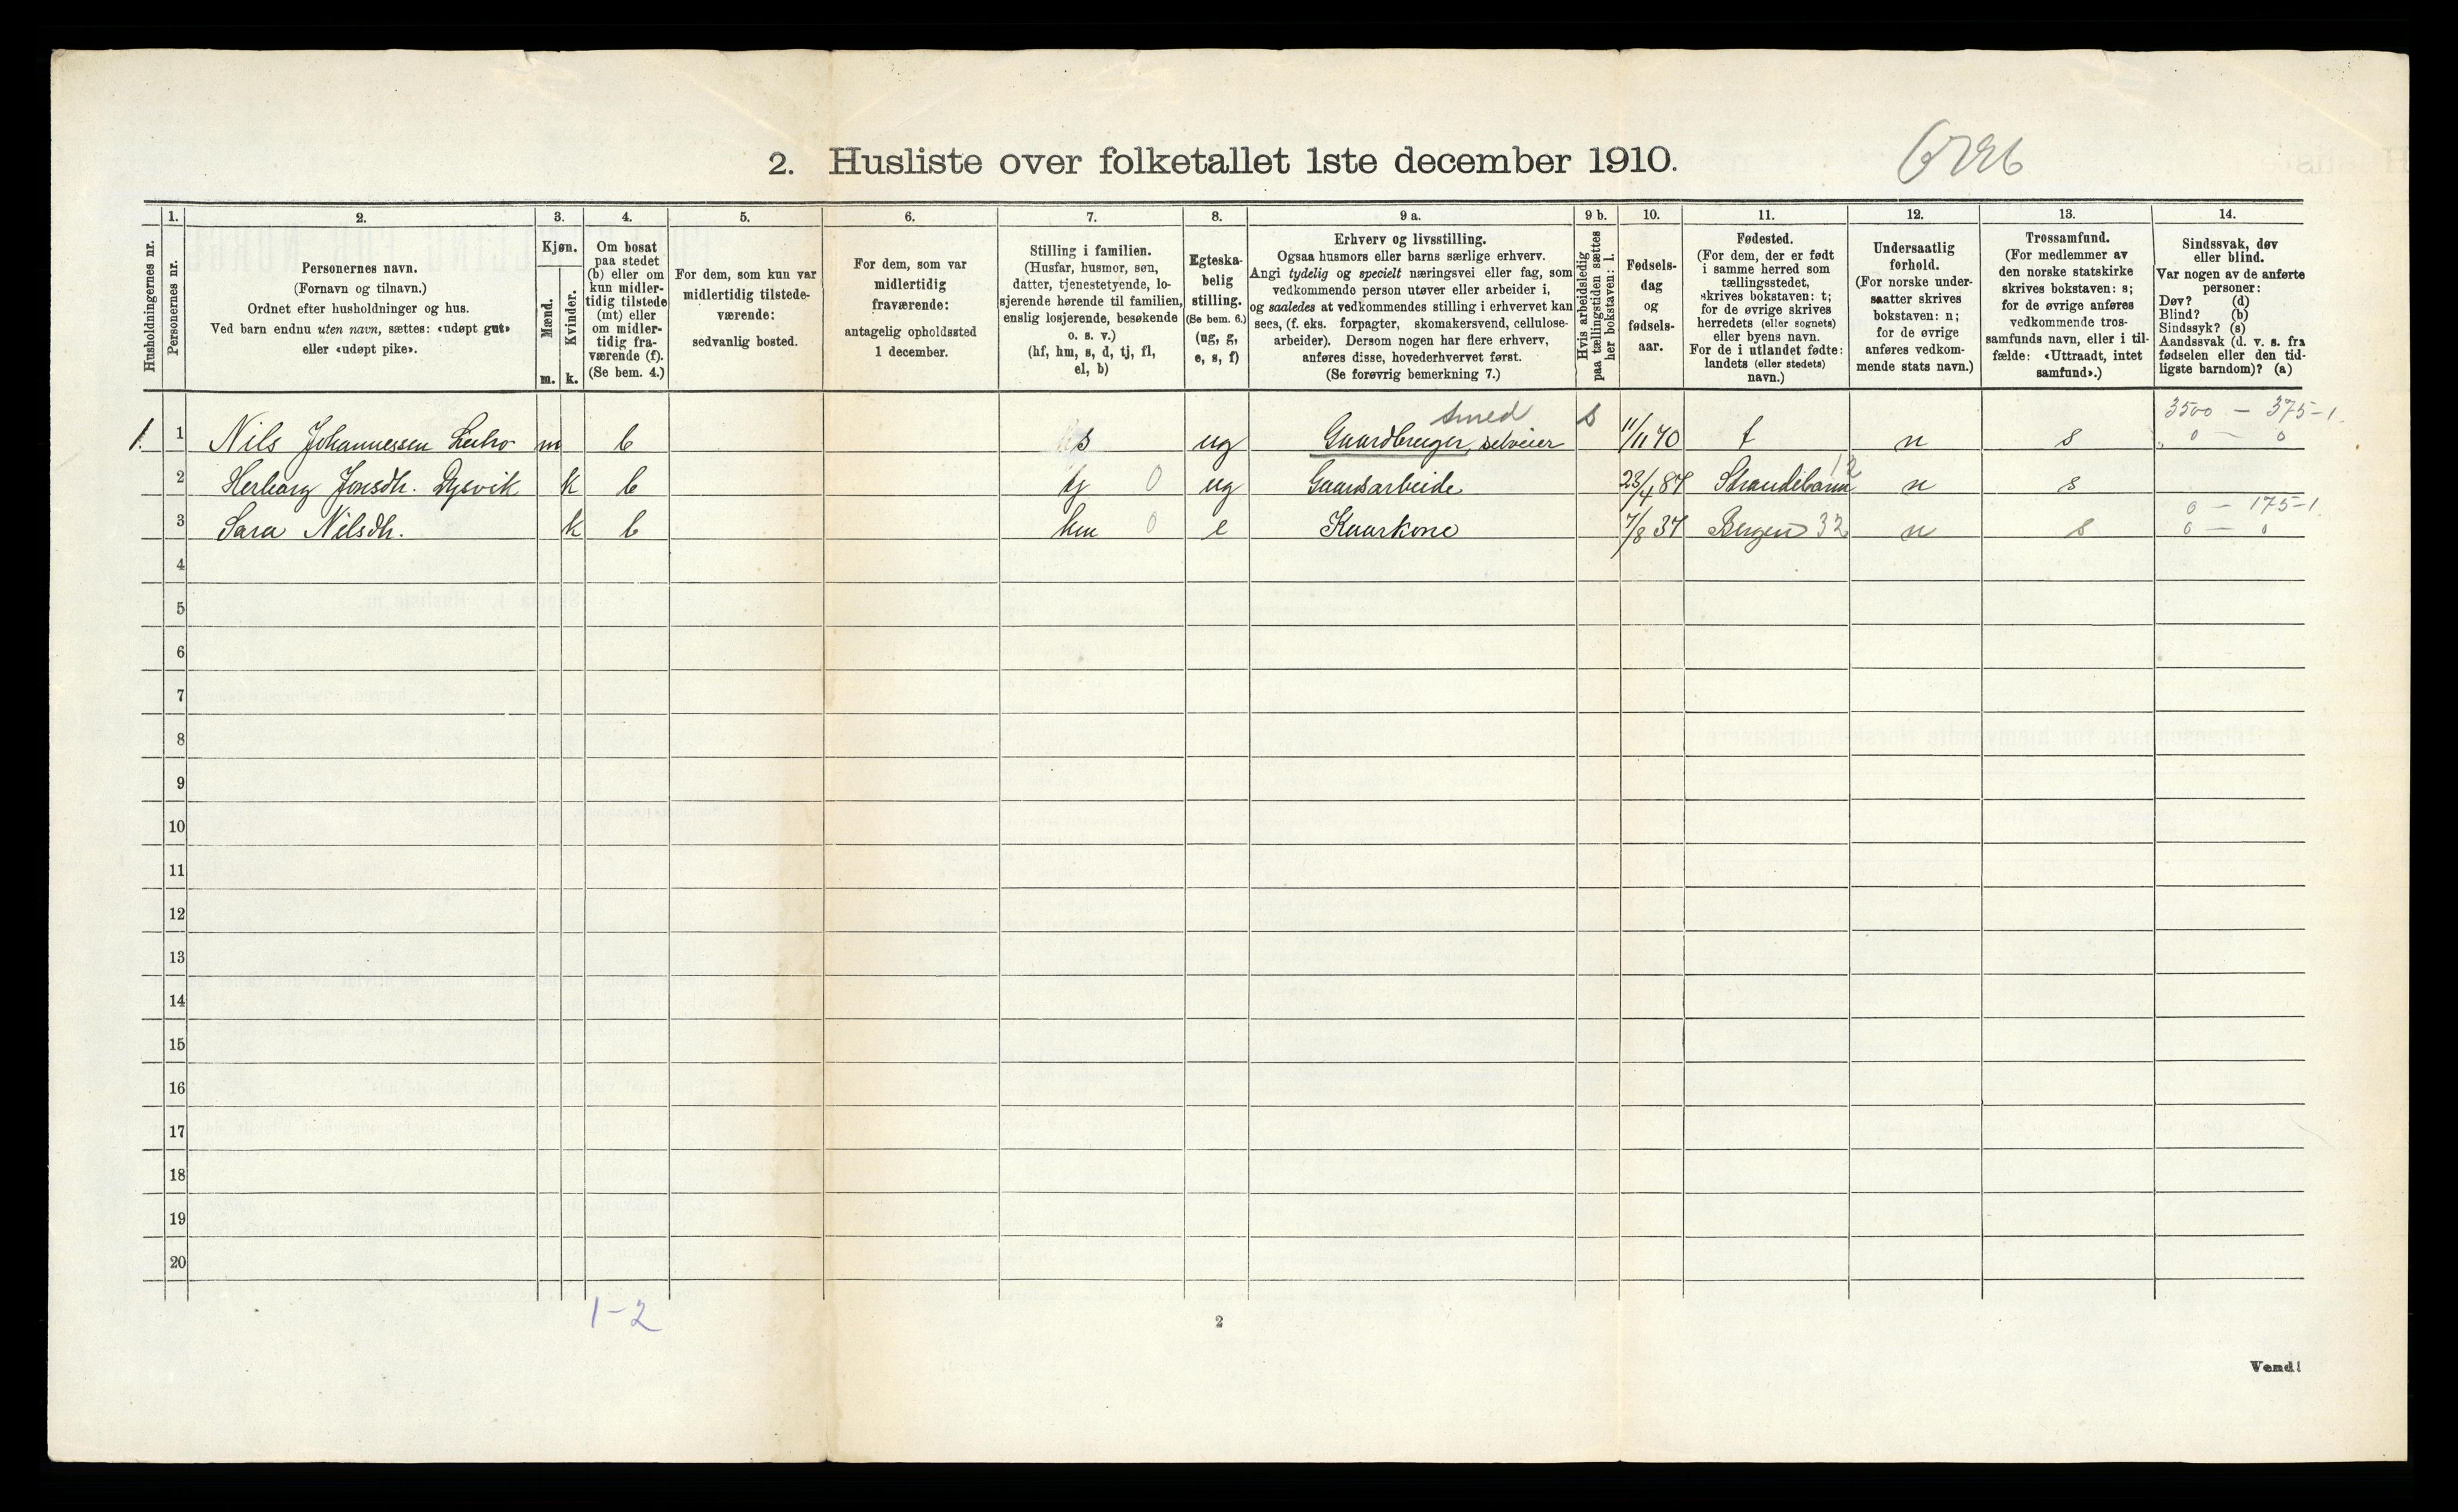 2. Husliste over folketallet 1ste december 1910.
1. 2. 3. 4. 5. 6. 7. 8. 9 a. 9 b. 10. 11. 12. 13. 14.
Husholdningernes nr.
Personernes nr.
Personernes navn.
(Fornavn og tilnavn.)
Ordnet efter husholdninger og hus.
Ved barn endnu uten navn, sættes: «udøpt gut»
eller «udøpt pike».
Kjøn.
Mænd.
m.
Kvinder.
k.
Om bosat
paa stedet
(b) eller om
kun midler-
tidig tilstede
(mt) eller
om midler-
tidig fra-
værende (f).
(Se bem. 4.)
For dem, som kun var
midlertidig tilstede-
værende:
sedvanlig bosted.
For dem, som var
midlertidig
fraværende:
antagelig opholdssted
1 december.
Stilling i familien.
(Husfar, husmor, søn,
datter, tjenestetyende, lo-
sjerende hørende til familien,
enslig losjerende, besøkende
o. s. v.)
(hf, hm, s, d, tj, fl,
el, b)
Egteska-
belig
stilling.
(Se bem. 6.)
(ug, g,
e, s, f)
Erhverv og livsstilling.
Ogsaa husmors eller barns særlige erhverv.
Angi tydelig og specielt næringsvei eller fag, som
vedkommende person utøver eller arbeider i,
og saaledes at vedkommendes stilling i erhvervet kan
sees, (f. eks. forpagter, skomakersvend, cellulose-
arbeider). Dersom nogen har flere erhverv,
anføres disse, hovederhvervet først.
(Se forøvrig bemerkning 7.)
Hvis arbeidsledig
paa tællingstiden sættes
her bokstaven: l.
Fødsels-
dag
og
fødsels-
aar.
Fødested.
(For dem, der er født
i samme herred som
tællingsstedet,
skrives bokstaven: t;
for de øvrige skrives
herredets (eller sognets)
eller byens navn.
For de i utlandet fødte:
landets (eller stedets)
navn.)
Undersaatlig
forhold.
(For norske under-
saatter skrives
bokstaven: n;
for de øvrige
anføres vedkom-
mende stats navn.)
Trossamfund.
(For medlemmer av
den norske statskirke
skrives bokstaven: s;
for de øvrige anføres
vedkommende tros-
samfunds navn, eller i til-
fælde: «Uttraadt, intet
samfund».)
Sindssvak, døv
eller blind.
Var nogen av de anførte
personer:
Døv? (d)
Blind? (b)
Sindssyk? (s)
Aandssvak (d. v. s. fra
fødselen eller den tid-
ligste barndom)? (a)
Smed s 3500 - 375-1
1. 1 Nils Johannessen m b s ug Gaardbruger, selveier 11/11 70 t n s 0 - 0
2 Herborg Jonsdtr. Dysvik k b tj 0 ug Gaardsarbeide 23/4 87 Strandebarm 12 n s
0 - 175-1
3 Sara Nilsdtr. k b hm 0 e Kaarkone 7/8 37 Bergen 32 n s 0 - 0
4
5
6
7
8
9
10
11
12
13
14
15
16
17
18
19
20
1-2
2
Vend!